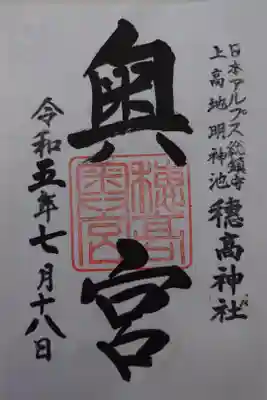 日本アルプス総鎮守
上高地明神池
穂高神社
奥宮
穂高
奥宮
令和五年七月十八日